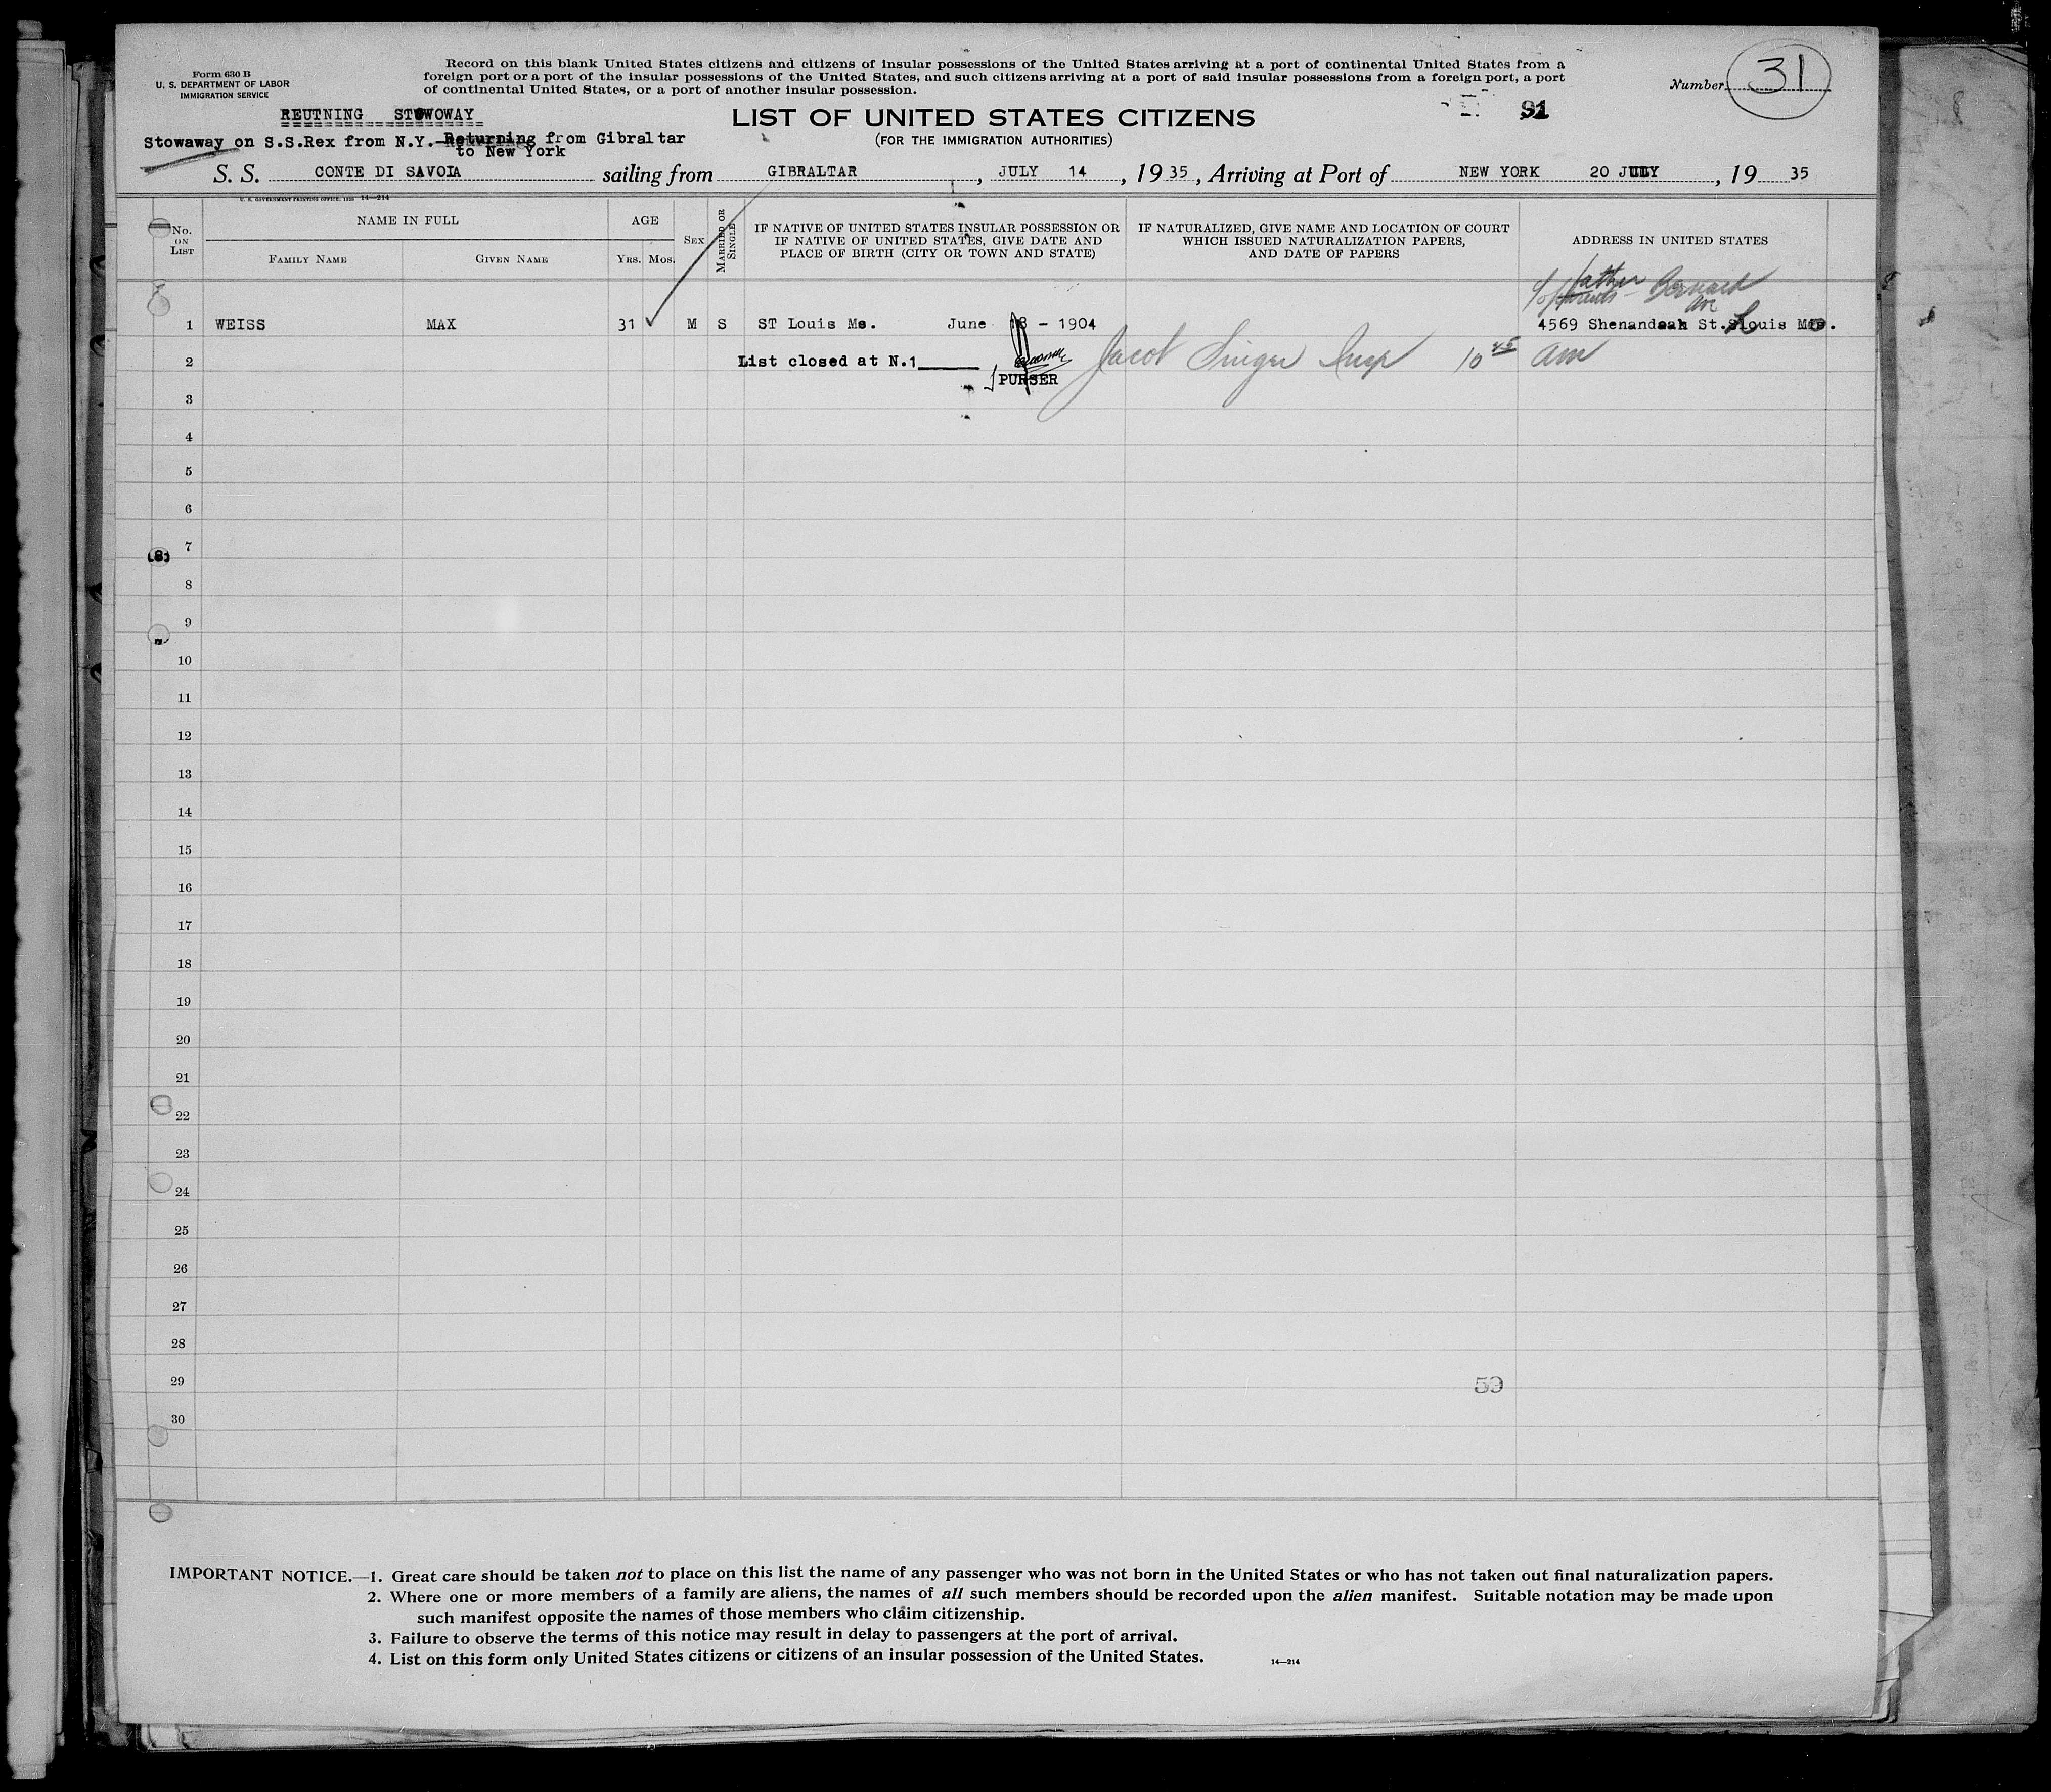 Form 630 B
U. S. DEPARTMENT OF LABOR
IMMIGRATION SERVICE
Record on this blank United States citizens and citizens of insular possessions of the United States arriving at a port of continental United States from a
foreign port or a port of the insular possessions of the United States, and such citizens arriving at a port of said insular possessions from a foreign port, a port
of continental United States, or a port of another insular possession.
Number 31
REUTNING STOWOWAY
LIST OF UNITED STATES CITIZENS
91
(FOR THE IMMIGRATION AUTHORITIES)
Stowaway on S.S.Rex from N.Y.-Returning from Gibraltar
to New York
S. S. CONTE DI SAVOIA sailing from GIBRALTAR, JULY 14, 1935, Arriving at Port of NEW YORK 20 JULY, 19 35
U. S. GOVERNMENT PRINTING OFFICE: 14—214
No. ON LIST
NAME IN FULL
FAMILY NAME
GIVEN NAME
AGE
YRS. MOS.
SEX
MARRIED OR SINGLE
IF NATIVE OF UNITED STATES INSULAR POSSESSION OR
IF NATIVE OF UNITED STATES, GIVE DATE AND
PLACE OF BIRTH (CITY OR TOWN AND STATE)
IF NATURALIZED, GIVE NAME AND LOCATION OF COURT
WHICH ISSUED NATURALIZATION PAPERS,
AND DATE OF PAPERS
ADDRESS IN UNITED STATES
father Bernard
parents
Av
1 WEISS MAX 31 M S ST Louis Mo. June 13 - 1904 4569 Shenandoah St. Louis Mo.
2 List closed at N.1 Jacob Singer Insp 10 45 am
PURSER
3
4
5
6
7
8
9
10
11
12
13
14
15
16
17
18
19
20
21
22
23
24
25
26
27
28
29
59
30
IMPORTANT NOTICE.—1. Great care should be taken not to place on this list the name of any passenger who was not born in the United States or who has not taken out final naturalization papers.
2. Where one or more members of a family are aliens, the names of all such members should be recorded upon the alien manifest. Suitable notation may be made upon
such manifest opposite the names of those members who claim citizenship.
3. Failure to observe the terms of this notice may result in delay to passengers at the port of arrival.
4. List on this form only United States citizens or citizens of an insular possession of the United States.
14—214